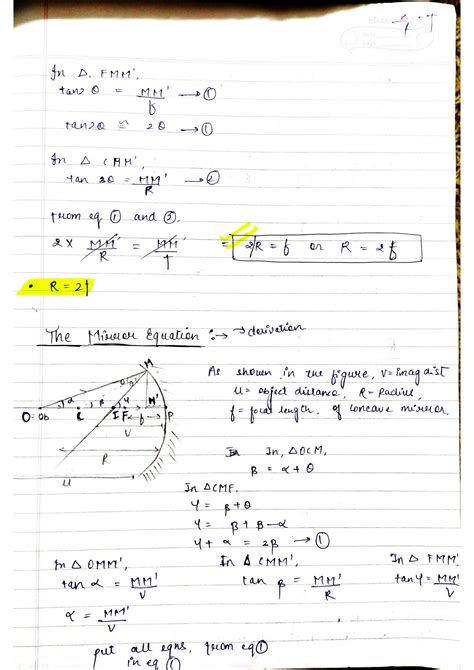 In Δ. FMM',
tan2θ = MM'/f → ①
tan2θ ≈ 2θ → ①
In Δ CMM',
tan 2θ = MM'/R → ②
from eq ① and ②.
2 × MM'/R = MM'/f = 2/R = f or R = 2f
• R = 2f
The Mirror Equation :→ → derivation
As shown in the figure, v = Imag dist
u = object distance, R = Radius,
f = focal length, of concave mirror
M
O = Ob C I F M' P
α β γ f
V
R
u
In, ΔOCM,
β = α + θ
In ΔCMF,
γ = β + θ
γ = β + β - α
γ + α = 2β → ①
In Δ OMM', In Δ CMM', In Δ FMM'
tan α = MM'/V tan β = MM'/R tan γ = MM'/V
α = MM'/V
put all eqns, from eq ①
in eq ①